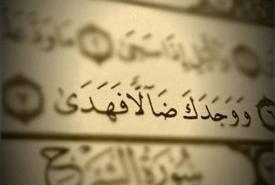 وَالَّيْلِ إِذَا سَجَىٰ ۝ مَا وَدَّعَ
۝٦ وَوَجَدَكَ ضَآلًّا فَهَدَىٰ ۝٧
سُورَةُ الشَّرْحِ